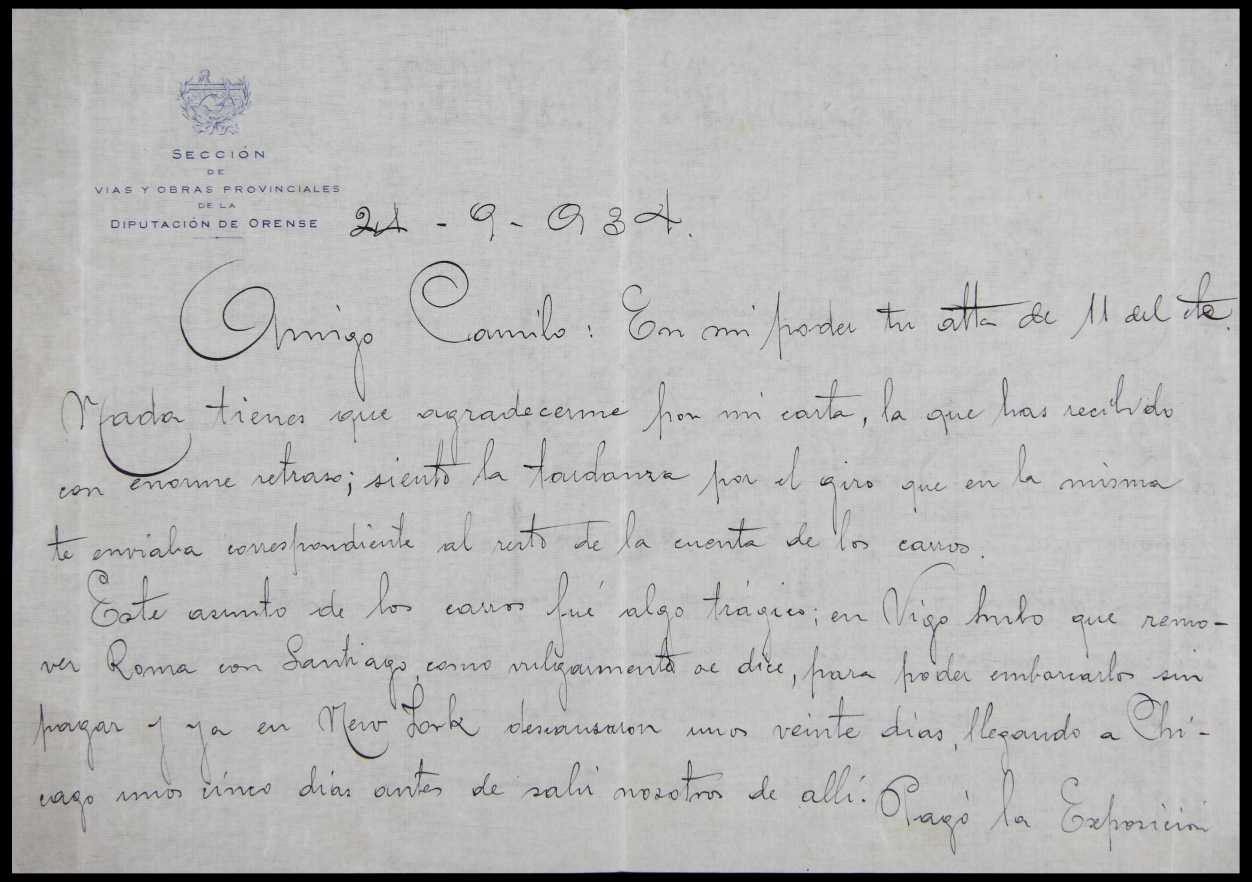 SECCIÓN
DE
VIAS Y OBRAS PROVINCIALES
DE LA
DIPUTACIÓN DE ORENSE
21 - 9 - 934.
Amigo Camilo: En mi poder tu atta de 11 del cte.
Nada tienes que agradecerme por mi carta, la que has recibido
con enorme retraso; siento la tardanza por el giro que en la misma
te enviaba correspondiente al resto de la cuenta de los carros.
Este asunto de los carros fué algo trágico; en Vigo hubo que remo-
ver Roma con Santiago, como vulgarmente se dice, para poder embarcarlos sin
pagar y ya en New York descansaron unos veinte días, llegando a Chi-
cago unos cinco días antes de salir nosotros de allí. Pagó la Exposición